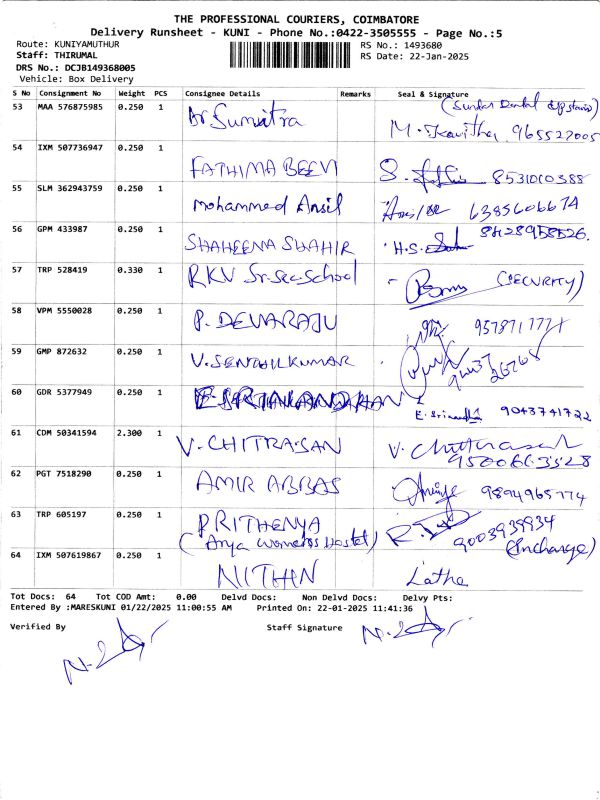 THE PROFESSIONAL COURIERS, COIMBATORE
Delivery Runsheet - KUNI - Phone No.:0422-3505555 - Page No.:5
Route: KUNIYAMUTHUR RS No.: 1493680
Staff: THIRUMAL RS Date: 22-Jan-2025
DRS No.: DCJB149368005
Vehicle: Box Delivery
S No Consignment No Weight PCS Consignee Details Remarks Seal & Signature
53 MAA 576875985 0.250 1 Sumitra (Sundar Dental upstairs)
M. Kavitha 965522005
54 IXM 507736947 0.250 1 FATHIMA BEEVI 8531010388
55 SLM 362943759 0.250 1 Mohammed Ansil 6385606674
56 GPM 433987 0.250 1 SHAHEENA SHAHIR H.S.
57 TRP 528419 0.330 1 RKV Sr.Sec.School (SECURITY)
58 VPM 5550028 0.250 1 P. DEVARAJU
59 GMP 872632 0.250 1 V.SENTHILKUMAR
60 GDR 5377949 0.250 1 9043741722
61 CDM 50341594 2.300 1 V.CHITRASAN V. Chitharasan
9500663528
62 PGT 7518290 0.250 1 AMIR ABBAS 9894965774
63 TRP 605197 0.250 1 PRITHENYA 9003939934
(Arya womens Hostel) (Incharge)
64 IXM 507619867 0.250 1 NITHIN Latha
Tot Docs: 64 Tot COD Amt: 0.00 Delvd Docs: Non Delvd Docs: Delvy Pts:
Entered By :MARESKUNI 01/22/2025 11:00:55 AM Printed On: 22-01-2025 11:41:36
Verified By Staff Signature